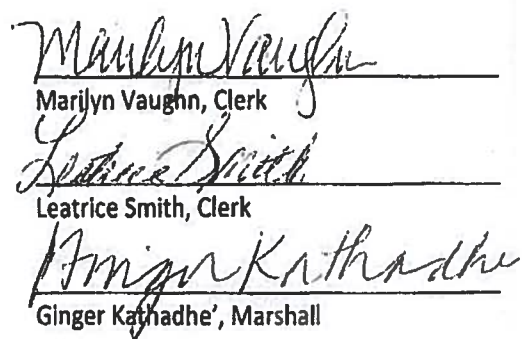 Marilyn Vaughn
Marilyn Vaughn, Clerk
Leatrice Smith
Leatrice Smith, Clerk
Ginger Kathadhe
Ginger Kathadhe', Marshall